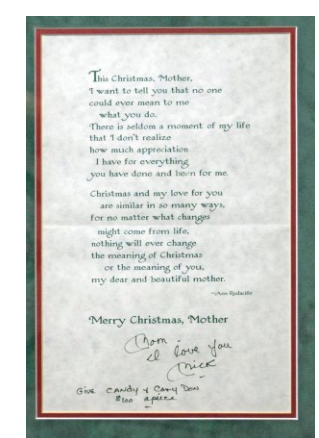 This Christmas, Mother,
I want to tell you that no one
could ever mean to me
what you do.
There is seldom a moment of my life
that I don't realize
how much appreciation
I have for everything
you have done and been for me.
Christmas and my love for you
are similar in so many ways,
for no matter what changes
might come from life,
nothing will ever change
the meaning of Christmas
or the meaning of you,
my dear and beautiful mother.
—Ann Rudacille
Merry Christmas, Mother
Mom
I love you
Mick
Give CANDY & Cary Don
$100 apiece